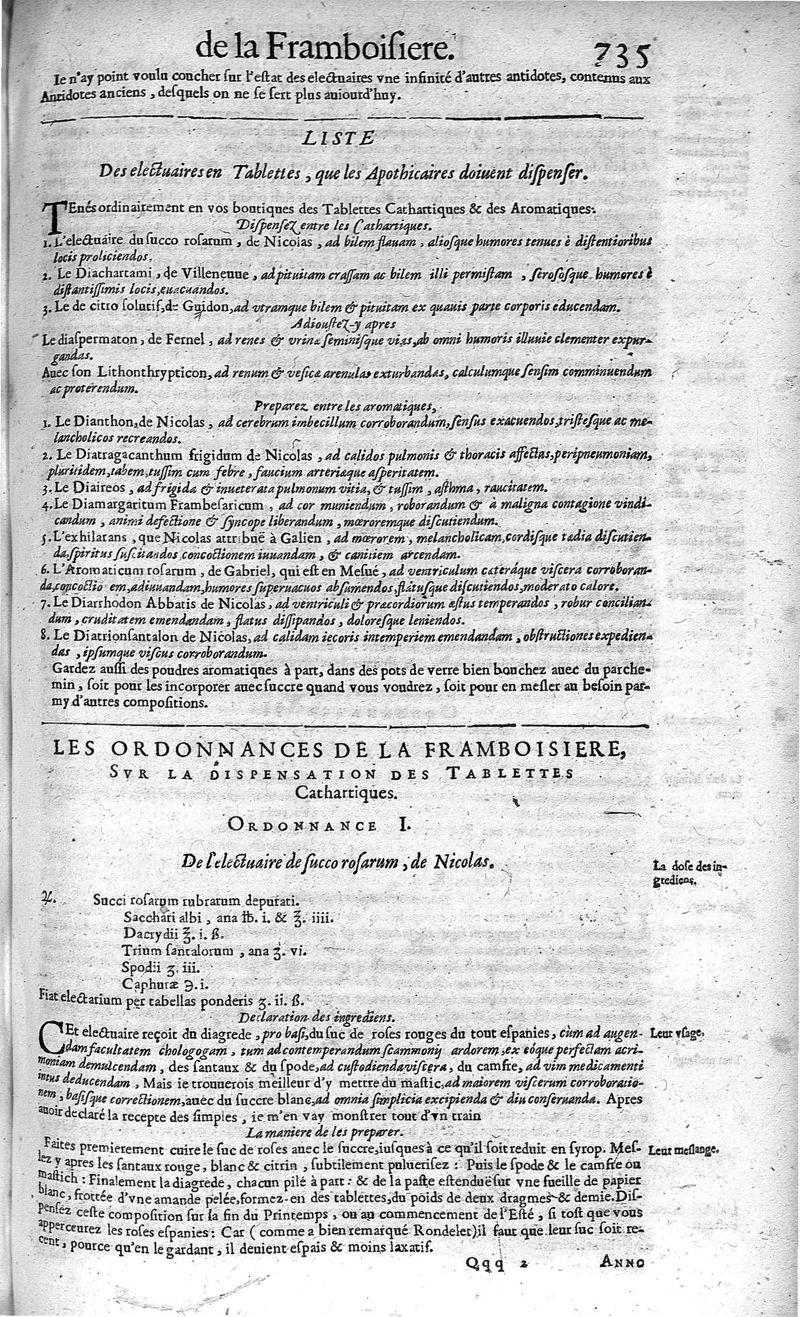 de la Framboisiere. 735
Ie n'ay point voulu coucher sur l'estat des electuaires vne infinité d'autres antidotes, contenus aux
Antidotes anciens, desquels on ne se sert plus auiourd'huy.
LISTE
Des electuaires en Tablettes, que les Apothicaires doiuent dispenser.
TEnés ordinairement en vos boutiques des Tablettes Cathartiques & des Aromatiques.
Dispensez entre les Cathartiques.
1. L'electuaire du succo rosarum, de Nicolas, ad bilem flauam, aliosque humores tenues è distentioribus
locis proliciendos.
2. Le Diachartami, de Villeneune, ad pituitam crassam ac bilem illi permistam, serososque humores è
distantissimis locis, euacuandos.
3. Le de citro solutif, de Guidon, ad vtramque bilem & pituitam ex quauis parte corporis educendam.
Adioustez-y apres
Le diaspermaton, de Fernel, ad renes & vrinæ seminisque vias, ab omni humoris illuuie clementer expur-
gandas.
Auec son Lithonthrypticon, ad renum & vesicæ arenulas exturbandas, calculumque sensim comminuendum
ac proterendum.
Preparez entre les aromatiques,
1. Le Dianthon, de Nicolas, ad cerebrum imbecillum corroborandum, sensus exacuendos, tristesque ac me-
lancholicos recreandos.
2. Le Diatragacanthum frigidum de Nicolas, ad calidos pulmonis & thoracis affectus, peripneumoniam,
pluritidem, tabem, tussim cum febre, faucium arteriæque asperitatem.
3. Le Diaireos, ad frigida & inueterata pulmonum vitia, & tussim, asthma, raucitatem.
4. Le Diamargaritum Frambesaricum, ad cor muniendum, roborandum & à maligna contagione vindi-
candum, animi defectione & syncope liberandum, mœroremque discutiendum.
5. L'exhilarans, que Nicolas attribuë à Galien, ad mœrorem, melancholicam, cordisque tædia discutien-
da, spiritus suscitandos, concoctionem iuuandam, & canitiem arcendam.
6. L'Aromaticum rosarum, de Gabriel, qui est en Mesué, ad ventriculum cateráque viscera corroboran-
da, concoctio em, adiuuandam, humores superuacuos absumendos, flatusque discutiendos, moderato calore.
7. Le Diarrhodon Abbatis de Nicolas, ad ventriculi & præcordiorum æstus temperandos, robur concilian-
dum, cruditatem emendandam, flatus dissipandos, doloresque leniendos.
8. Le Diatrionsantalon de Nicolas, ad calidam iecoris intemperiem emendandam, obstructiones expedien-
das, ipsumque viscus corroborandum.
Gardez aussi des poudres aromatiques à part, dans des pots de verre bien bouchez auec du parche-
min, soit pour les incorporer auec succre quand vous voudrez, soit pour en mesler au besoin par-
my d'autres compositions.
LES ORDONNANCES DE LA FRAMBOISIERE,
SVR LA DISPENSATION DES TABLETTES
Cathartiques.
ORDONNANCE I.
De l'electuaire de succo rosarum, de Nicolas.
La dose des in-
grediens.
℞. Succi rosarum rubrarum depurati.
Sacchari albi, ana ℔. i. & ℥. iiii.
Dacrydii ℥. i. ß.
Trium santalorum, ana ʒ. vi.
Spodii ʒ. iii.
Caphuræ ℈. i.
Fiat electarium per tabellas ponderis ʒ. ii. ß.
Declaration des ingrediens.
CEt electuaire reçoit du diagrede, pro basi, du suc de roses rouges du tout espanies, cùm ad augen-
dam facultatem chologogam, tum ad contemperandum scammonij ardorem, ex eóque perfectam acri-
moniam demulcendam, des santaux & du spode, ad custodienda viscera, du camfre, ad vim medicamenti
intus deducendam, Mais ie trouuerois meilleur d'y mettre du mastic, ad maiorem viscerum corroboratio-
nem, basisque correctionem, auec du succre blanc, ad omnia simplicia excipienda & diu conseruanda. Apres
auoir declaré la recepte des simples, ie m'en vay monstrer tout d'vn train
Leur vsage.
La maniere de les preparer.
Faites premierement cuire le suc de roses auec le succre, iusques à ce qu'il soit reduit en syrop. Mes-
lez y apres les santaux rouge, blanc & citrin, subtilement puluerisez: Puis le spode & le camfre ou
mastich: Finalement la diagrede, chacun pilé à part: & de la paste estenduë sur vne fueille de papier
blanc, frottée d'vne amande pelée, formez-en des tablettes, du poids de deux dragmes & demie. Dis-
pensez ceste composition sur la fin du Printemps, ou au commencement de l'Esté, si tost que vous
apperceurez les roses espanies: Car (comme a bien remarqué Rondelet) il faut que leur suc soit re-
cent, pource qu'en le gardant, il deuient espais & moins laxatif.
Leur meslange.
Qqq 2 ANNO